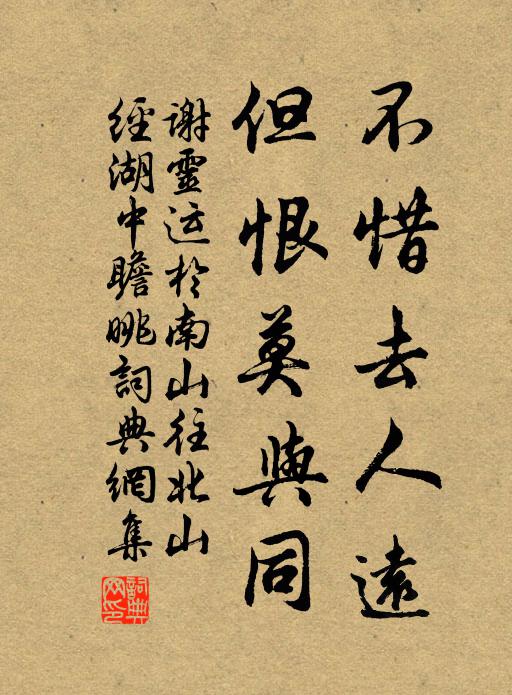 不惜去人遠
但恨莫與同
謝靈运於南山往北山
經湖中瞻眺詞典網集
詞典
网印